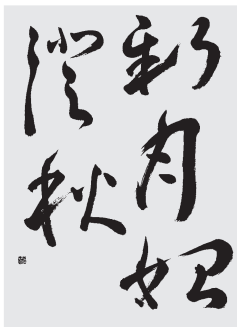 新月如
澄秋